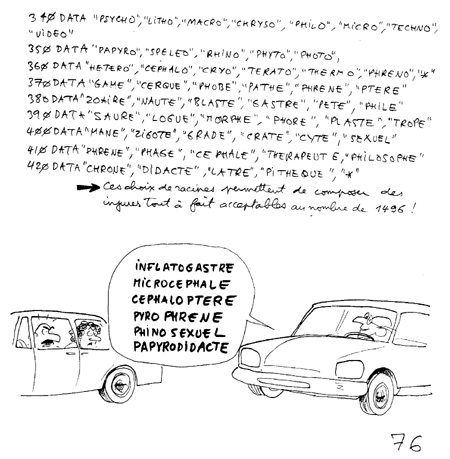 340 DATA "PSYCHO","LITHO","MACRO","CHRYSO", "PHILO","MICRO","TECHNO",
"VIDEO"
350 DATA "PAPYRO","SPELEO","RHINO","PHYTO","PHOTO",
360 DATA "HETERO","CEPHALO","CRYO","TERATO","THERMO","PHRENO","*"
370 DATA "GAME","CERQUE","PHOBE","PATHE","PHRENE","PTERE"
380 DATA "ZOAIRE","NAUTE","BLASTE","GASTRE","PETE","PHILE"
390 DATA "SAURE","LOGUE","MORPHE","PHORE","PLASTE","TROPE"
400 DATA "MANE","ZIGOTE","GRADE","CRATE","CYTE","SEXUEL"
410 DATA "PHRENE","PHAGE","CEPHALE","THERAPEUTE,"PHILOSOPHE"
420 DATA "CHRONE","DIDACTE","LATRE","PITHEQUE","*"
Ces choix de racines permettent de composer des
injures tout à fait acceptables au nombre de 1496 !
INFLATOGASTRE
MICROCEPHALE
CEPHALOPTERE
PYROPHRENE
RHINOSEXUEL
PAPYRODIDACTE
76